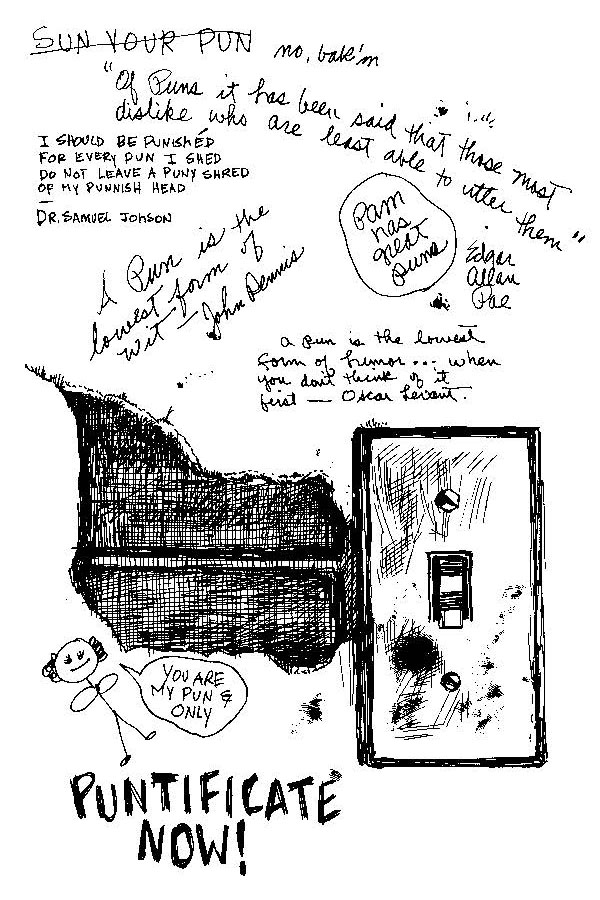 SUN YOUR PUN
no, bak'm
"Of Puns it has been said that those most
dislike who are least able to utter them"
Edgar
Allan
Poe
I SHOULD BE PUNISHED
FOR EVERY PUN I SHED
DO NOT LEAVE A PUNY SHRED
OF MY PUNNISH HEAD
—
DR. SAMUEL JOHSON
Pam
has
great
puns
A Pun is the
lowest form of
wit — John Dennis
a pun is the lowest
form of humor... when
you don't think of it
first — Oscar Levant.
YOU ARE
MY PUN &
ONLY
PUNTIFICATE
NOW!